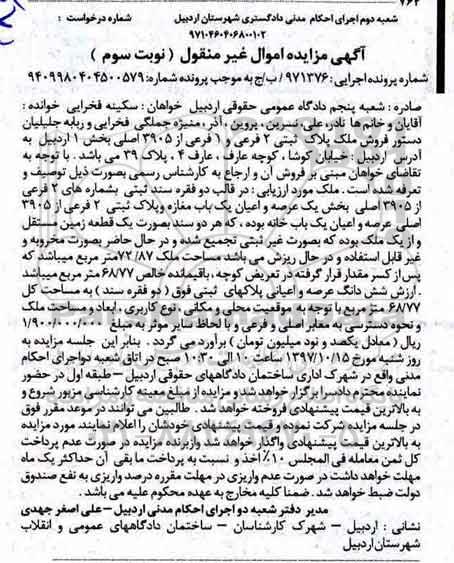 ۷۶۲
شعبه دوم اجرای احکام مدنی دادگستری شهرستان اردبیل شماره درخواست :
۹۷۱۰۴۶۰۴۰۶۸۰۰۱۰۲
آگهی مزایده اموال غیر منقول ( نوبت سوم )
شماره پرونده اجرایی : ۹۷۱۳۷۶ / ب/ج به موجب پرونده شماره: ۹۴۰۹۹۸۰۴۰۴۵۰۰۵۷۹
صادره : شعبه پنجم دادگاه عمومی حقوقی اردبیل خواهان : سکینه فخرایی خوانده :
آقایان و خانم ها نادر، علی، نسرین ، پروین ، آذر ، منیژه جملگی فخرایی و ربابه جلیلیان
دستور فروش ملک پلاک ثبتی ۲ فرعی و ۱ فرعی از ۳۹۰۵ اصلی بخش ۱ اردبیل به
آدرس اردبیل : خیابان کوشا ، کوچه عارف ، عارف ۴ ، پلاک ۳۹ می باشد . با توجه به
تقاضای خواهان مبنی بر فروش آن و ارجاع به کارشناس رسمی بصورت ذیل توصیف و
تعرفه شده است . ملک مورد ارزیابی : در قالب دو فقره سند ثبتی بشماره های ۲ فرعی
از ۳۹۰۵ اصلی بخش یک عرصه و اعیان یک باب مغازه وپلاک ثبتی ۲ فرعی از ۳۹۰۵
اصلی عرصه و اعیان یک باب خانه بوده ، که هر دو سند بصورت یک قطعه زمین مستقل
و از یک ملک بوده که بصورت غیر ثبتی تجمیع شده و در حال حاضر بصورت مخروبه و
غیر قابل استفاده و در حال ریزش می باشد مساحت ملک ۷۲/۸۷متر مربع میباشد که
پس از کسر مقدار قرار گرفته در تعریض کوچه ، باقیمانده خالص ۶۸/۷۷ متر مربع میباشد
. ارزش شش دانگ عرصه و اعیانی پلاکهای ثبتی فوق ( دو فقره سند ) به مساحت کل
۶۸/۷۷ متر مربع با توجه به موقعیت محلی و مکانی ، نوع کاربری ، ابعاد و مساحت ملک
و نحوه دسترسی به معابر اصلی و فرعی و با لحاظ سایر موثر به مبلغ ۱/۹۰۰/۰۰۰/۰۰۰
ریال ( معادل یکصد و نود میلیون تومان ) برآورد می گردد . بنابر این جلسه مزایده به
روز شنبه مورخ ۱۳۹۷/۱۰/۱۵ ساعت ۱۰ الی ۱۰:۳۰ صبح در اتاق شعبه دواجرای احکام
مدنی واقع در شهرک اداری ساختمان دادگاههای حقوقی اردبیل – طبقه اول در حضور
نماینده محترم دادسرا برگزار خواهد شد و مزایده از مبلغ معینه کارشناسی مزبور شروع و
به بالاترین قیمت پیشنهادی فروخته خواهد شد . طالبین می توانند در موعد مقرر فوق
در جلسه مزایده شرکت نموده و قیمت پیشنهادی خودشان را اعلام نمایند. مورد مزایده
به بالاترین قیمت پیشنهادی واگذار خواهد شد وازبرنده مزایده در صورت عدم پرداخت
کل ثمن معامله فی المجلس ۱۰٪ اخذ و نسبت به پرداخت ما بقی آن حداکثر یک ماه
مهلت خواهد داشت در صورت عدم واریزی در مهلت مقرره درصد واریزی به نفع صندوق
دولت ضبط خواهد شد . ضمنا کلیه مخارج به عهده محکوم علیه می باشد .
مدیر دفتر شعبه دو اجرای احکام مدنی اردبیل – علی اصغر جهدی
نشانی : اردبیل – شهرک کارشناسان – ساختمان دادگاههای عمومی و انقلاب
شهرستان اردبیل